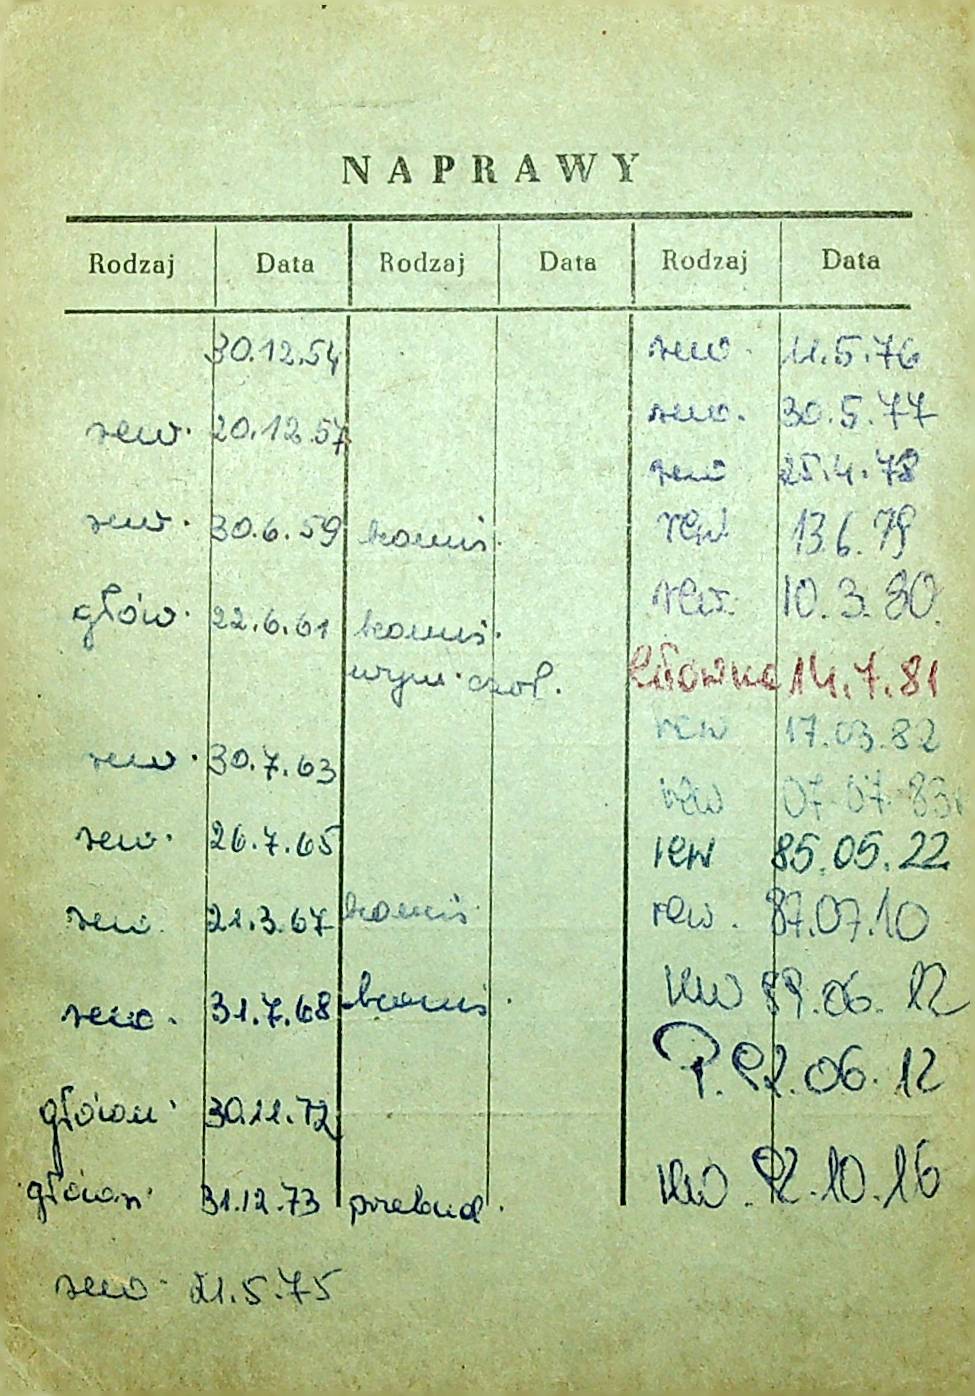 NAPRAWY
Rodzaj Data Rodzaj Data Rodzaj Data
30.12.54 rew. 11.5.76
rew. 20.12.57 rew. 30.5.77
rew 25.4.78
rew. 30.6.59 komis. rew. 13.6.79
głów. 22.6.61 komis. rew. 10.3.80.
wym. czoł. Główna 14.7.81
rew. 30.7.63 rew 17.03.82
rew 07.07.83
rew. 26.7.65 rew 85.05.22
rew. 21.3.67 komis. rew. 87.07.10
rew. 31.7.68 komis. rew 89.06.12
P. 92.06.12
główn. 30.11.72
główn. 31.12.73 przebud. rew. 92.10.16
rew. 21.5.75